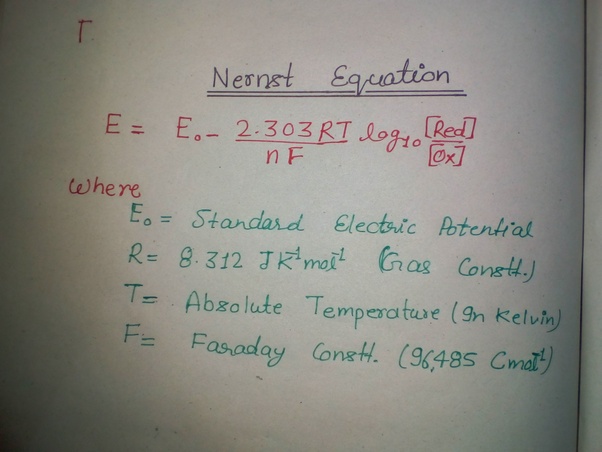 T
Nernst Equation
E = E₀ - 2.303RT/nF log₁₀ [Red]/[Ox]
Where
E₀ = Standard Electric Potential
R = 8.312 JK⁻¹mol⁻¹ (Gas Constt.)
T = Absolute Temperature (In Kelvin)
F = Faraday Constt. (96,485 Cmol⁻¹)